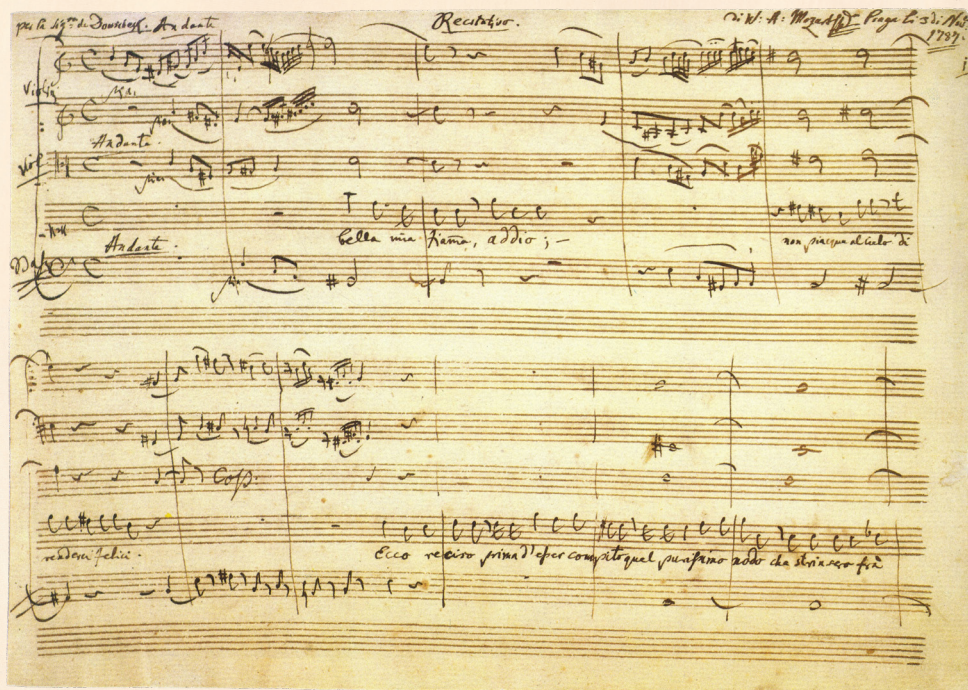 per la Sig.ra di Douscheck. Andante
Recitativo.
Di W: A: Mozart Praga li 3 di Nov. 1787.
Violin
Andante.
viol
bella mia fiama, addio; — non piacque al cielo di
Andante.
rendersi felici.
Ecco reciso prima d'esser compito quel purissimo nodo che strinsero frà